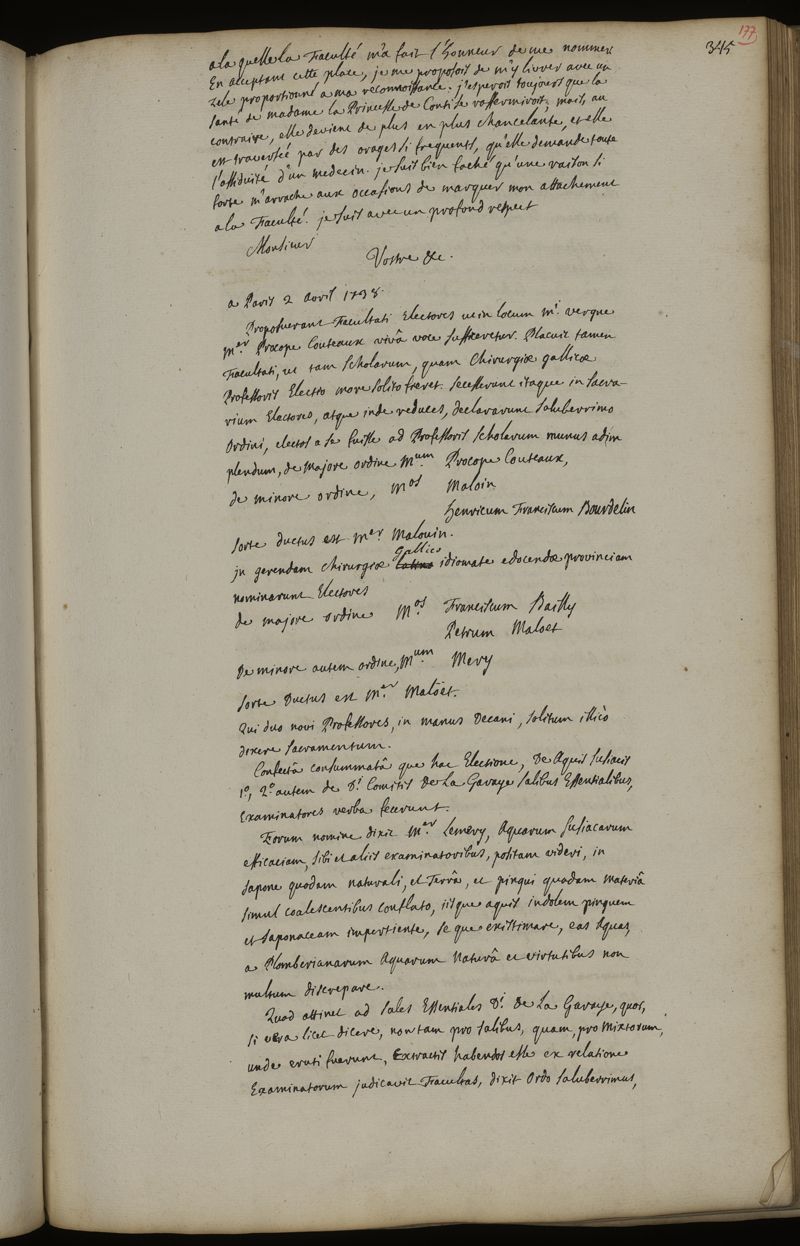 177
345
a la quelle la Faculté m'a fait l'honneur de me nommer
En acceptant cette place, je me proposois de m'y livrer avec un
zele proportionné a ma reconnoissance. j'esperois toujours que la
santé de madame la Princesse de Conti se raffermiroit; mais, au
contraire, elle devient de plus en plus chancelante, et elle
est traversée par des orages si frequents, qu'elle demande toute
l'assiduité d'un medecin. je suis bien faché qu'une raison si
forte m'arrache aux occasions de marquer mon attachement
a la Faculté. je suis avec un profond respect
Monsieur
Vostre &c.
a Paris 2 avril 1738.
Proposuerant Facultati Electores ut in locum mi. vergne
Mer. Procope Couteaux vivâ voce sufficeretur. Placuit tamen
Facultati, ut tam scholarum, quam Chirurgiæ gallicæ
Professoris Electio more solito fieret. secesserunt itaque in sacra-
rium Electores, atque inde reduces, declaravunt saluberrimo
Ordini, electos a se fuisse ad Professoris scholarum munus adim
plendum, de majore ordine Mum. Procope Couteaux,
de minore ordine, Mos Maloin
henricum Franciscum Bourdelin
sorte ductus est Mer. Malouin.
jn gerendam Chirurgiæ latino gallico idiomate edocendæ provinciam
nominarunt Electores
de majore ordine Mos Franciscum Bailly
Petrum Maloet
De minore autem ordine, Mum. Mery
sorte Ductus est Mer. Maloët.
Qui duo novi Professores, in manus Decani, solitum illico
dixere sacramentum.
Confectâ consummatâ que hac Electione, De Aquis susiacis
1°, 2° autem de Di. Comitis De La Garaye salibus Essentialibus,
Examinatores verba fecerunt.
Eorum nomine dixit Mer. Lemery, Aquarum susiacarum
efficaciam, sibi et aliis examinatoribus, positam videri, in
sapone quodam naturali, et Terrâ, et pingui quadam materiâ
simul coalescentibus conflato, iisque aquis indolem pinguem
et saponaceam impertiente, se que existimare, eas aquas,
a Plomberianarum Aquarum Naturâ et virtutibus non
multum discrepare.
Quod attinet ad sales Essentiales Di. De La Garaye, quos,
si vera licet dicere, non tam pro salibus, quam, pro Mixtorum,
unde eruti fuerunt, Extractis habendos esse ex relatione
Examinatorum judicavit Facultas, dixit Ordo saluberrimus,